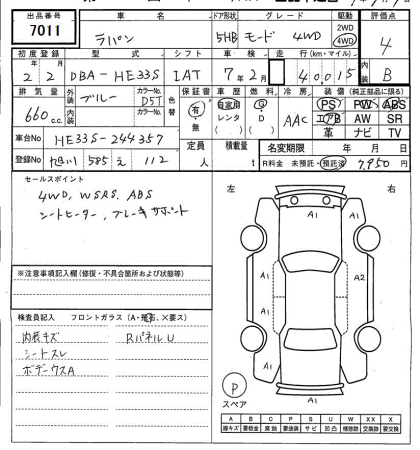 出品番号 車名 ドア形状 グレード 駆動 評価点
7011 ラパン 5HB モード 4WD 2WD 4WD 4
初度登録 型式 シフト 車検 走行(km・マイル) 内装
22年2月 DBA-HE33S IAT 7年2月 40,015 B
排気量 外装 カラーNo. 色替 保証書 車歴 燃料 冷房 装備(純正部品に限る)
660cc 外装 ブルー D5T 有 自家用 G AAC PS PW ABS
内装 カラーNo. 無 レンタ D エアB AW SR
革 ナビ TV
車台No HE33S-244357 定員 積載量 名変期限 年 月 日
登録No 旭川 585 え 112 人 t R料金 未預託・預託済 7,950円
セールスポイント
4WD, WSRS, ABS
シートヒーター, ブレーキサポート
左 右
A1
A1
A1 A2
A1
A1
※注意事項記入欄(修復・不具合箇所および状態等)
検査員記入 フロントガラス(A・飛石、×要ス)
内装キズ RパネルU
シートスレ
ボデーウスA
P
スペア
A B C P S U W X XX
線キズ 要板金 腐蝕 要塗装 サビ 凹凸 補修跡 交換跡 要交換